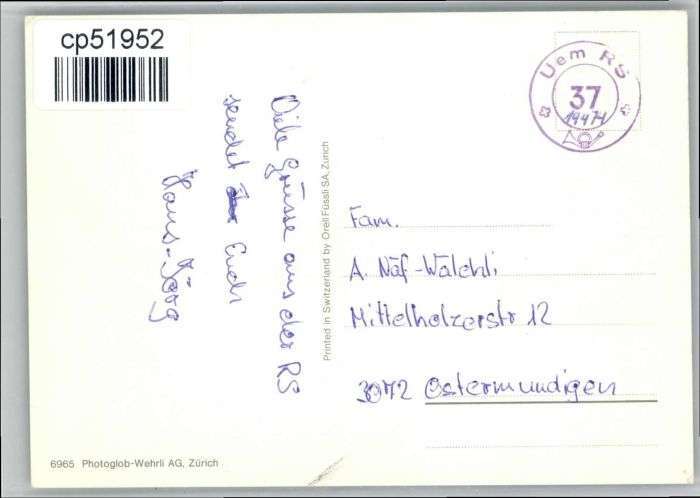 cp51952
Uem RS
37
19474
Viele Grüsse aus der RS
sendet Euch
Hans-Jörg
Printed in Switzerland by Orell Füssli SA, Zürich
Fam.
A. Näf-Wälchli
Mittelholzerstr 12
3072 Ostermundigen
6965 Photoglob-Wehrli AG, Zürich